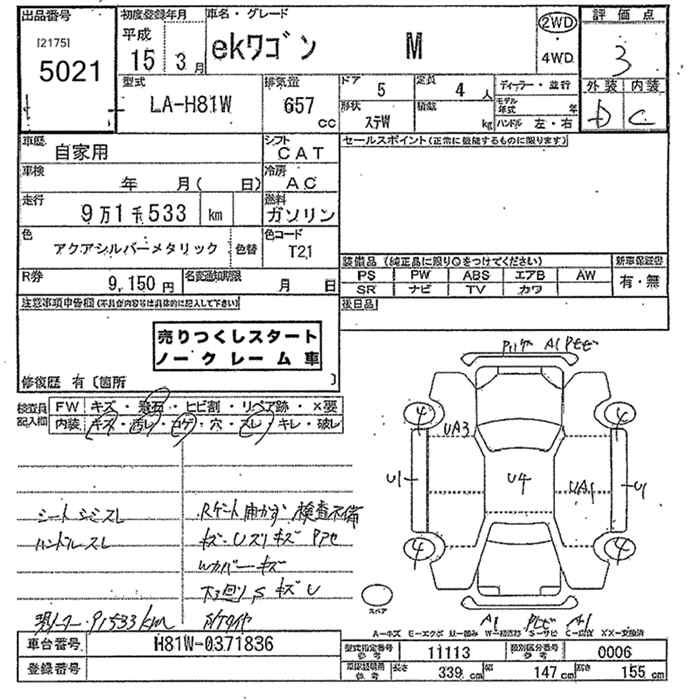 出品番号 初度登録年月 車名・グレード 2WD 評価点
[2175] 平成
5021 15年 3月 ekワゴン M 4WD 3
型式 排気量 ドア 5 定員 4人 ディーラー・並行 外装 内装
LA-H81W 657cc 形状 ステW 積載 kg モデル年式 年 D C
ハンドル 左・右
車歴 自家用 シフト CAT セールスポイント(正常に機能するものに限ります)
車検 年 月( 日) 冷房 AC
走行 9万1千533 km 燃料 ガソリン
色 アクアシルバーメタリック 色替 色コード T21
装備品(純正品に限り○をつけてください) 新車保証書
PS PW ABS エアB AW 有・無
SR ナビ TV カワ
R券 9,150円 名変期限 月 日
後日品
注意事項申告欄(不具合内容等は具体的に記入して下さい)
売りつくしスタート
ノークレーム車
修復歴 有〔箇所 〕
検査員記入欄 FW キズ・飛石・ヒビ割・リペア跡・X要
内装 キズ・汚レ・コゲ・穴・スレ・キレ・破レ
A1
UA3
U1 U4 UA1 U1
4 4 4 4
シート シミ スレ Rゲート開かず 検査不備
ハンドルスレ キズ・Uズリキズ
Wカバーキズ
下回りSキズU
91533km
スペア
A1 A1
A-キズ E-エクボ U-凹み S-サビ XX-交換済
車台番号 H81W-0371836 型式指定番号 参考 11113 類別区分番号 参考 0006
登録番号 車検証記載 参考 長さ 339cm 幅 147cm 高さ 155cm